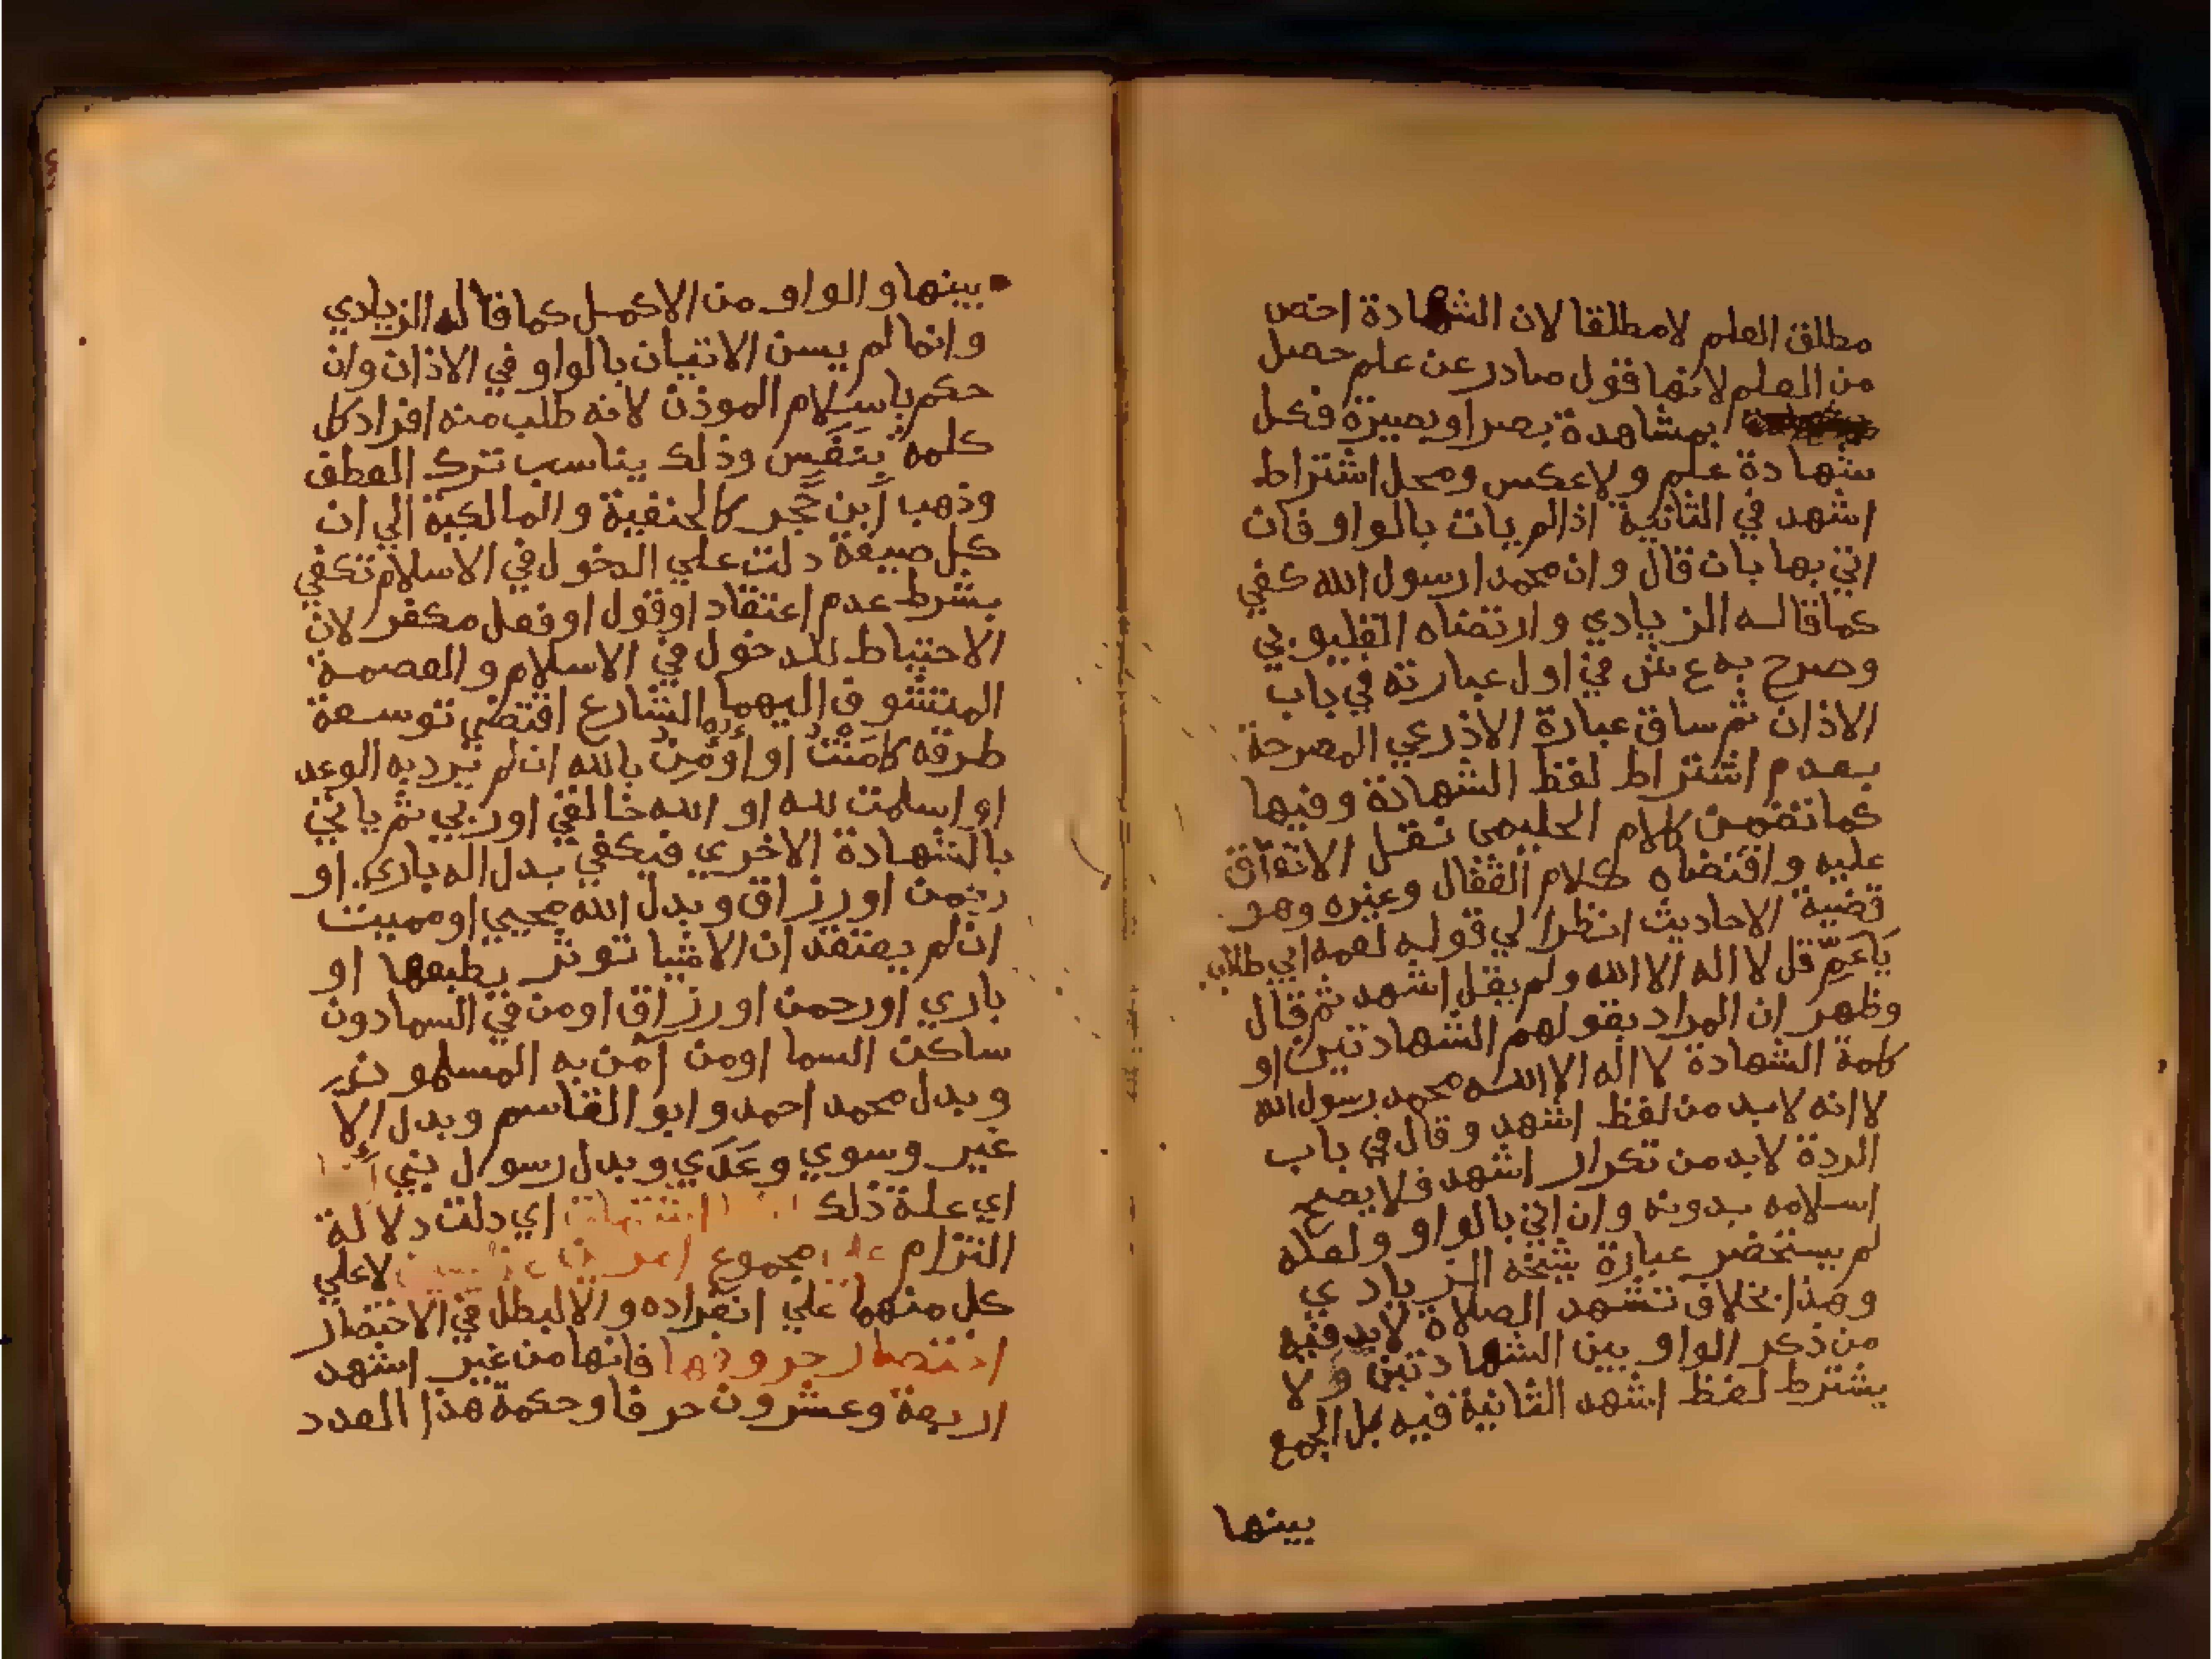 مطلق العلم لامطلقا لان الشهادة اخص
من العلم لانها قول صادر عن علم حصل
بمشاهدة بصر او بصيرة فكل
شهادة علم ولاعكس ومحل اشتراط
اشهد في الثانية اذالم يات بالواو فان
اتي بها بان قال وان محمدا رسول الله كفي
كماقاله الزيادي وارتضاه القليوبي
وصرح به ع ش في اول عبارته في باب
الاذان ثم ساق عبارة الاذرعي المصرحة
بعدم اشتراط لفظ الشهادة وفيها
كما تضمن كلام الحليمي نقل الاتفاق
عليه واقتضاه كلام القفال وغيره وهو
قضية الاحاديث انظرا لي قوله لعمه ابي طالب
يَاعَمِّ قل لا اله الا الله ولم يقل اشهد ثم قال
وظهر ان المراد بقولهم الشهادتين او
كلمة الشهادة لا اله الا الله محمد رسول الله
لا انه لابد من لفظ اشهد وقال في باب
الردة لابد من تكرار اشهد فلا يصح
اسلامه بدونه وان اتي بالواو ولعله
لم يستحضر عبارة شيخه الزيادي
وهذا بخلاف تشهد الصلاة لابد فيه
من ذكر الواو بين الشهادتين ولا
يشترط لفظ اشهد الثانية فيه بل الجمع
بينها
بينها والواو من الاكمل كما قاله الزيادي
وانما لم يسن الاتيان بالواو في الاذان وان
حكم باسلام الموذن لانه طلب منه افراد كل
كلمه بِنَفَسٍ وذلك يناسب ترك العطف
وذهب ابن حجر كالحنفية والمالكية الي ان
كل صيغة دلت علي الدخول في الاسلام تكفي
بشرط عدم اعتقاد اوقول اوفعل مكفر لان
الاحتياط للدخول في الاسلام والعصمة
المتشوف اليهما الشارع اقتضي توسعة
طرقه كامَنْتُ او اُوْمِنُ بالله ان لم يُرد به الوعد
او اسلمت لله او الله خالقي اوربي ثم ياتي
بالشهادة الاخري فيكفي بدل اله باري او
رحمن اورزاق وبدل الله محيي اومميت
ان لم يعتقد ان الاشيا توثر بطبعها او
باري اورحمن اورزاق اومن في السمادون
ساكن السما اومن آمن به المسلمون
وبدل محمد احمد وابو القاسم وبدل الا
غير وسوي وعَدَي وبدل رسول نبي
اي علة ذلك اي دلت دلالة
التزام مجموع لاعلي
كل منهما علي انفراده والالبطل في الاختصار
اختصار حروفها فانها من غير اشهد
اربعة وعشرون حرفا وحكمة هذا العدد